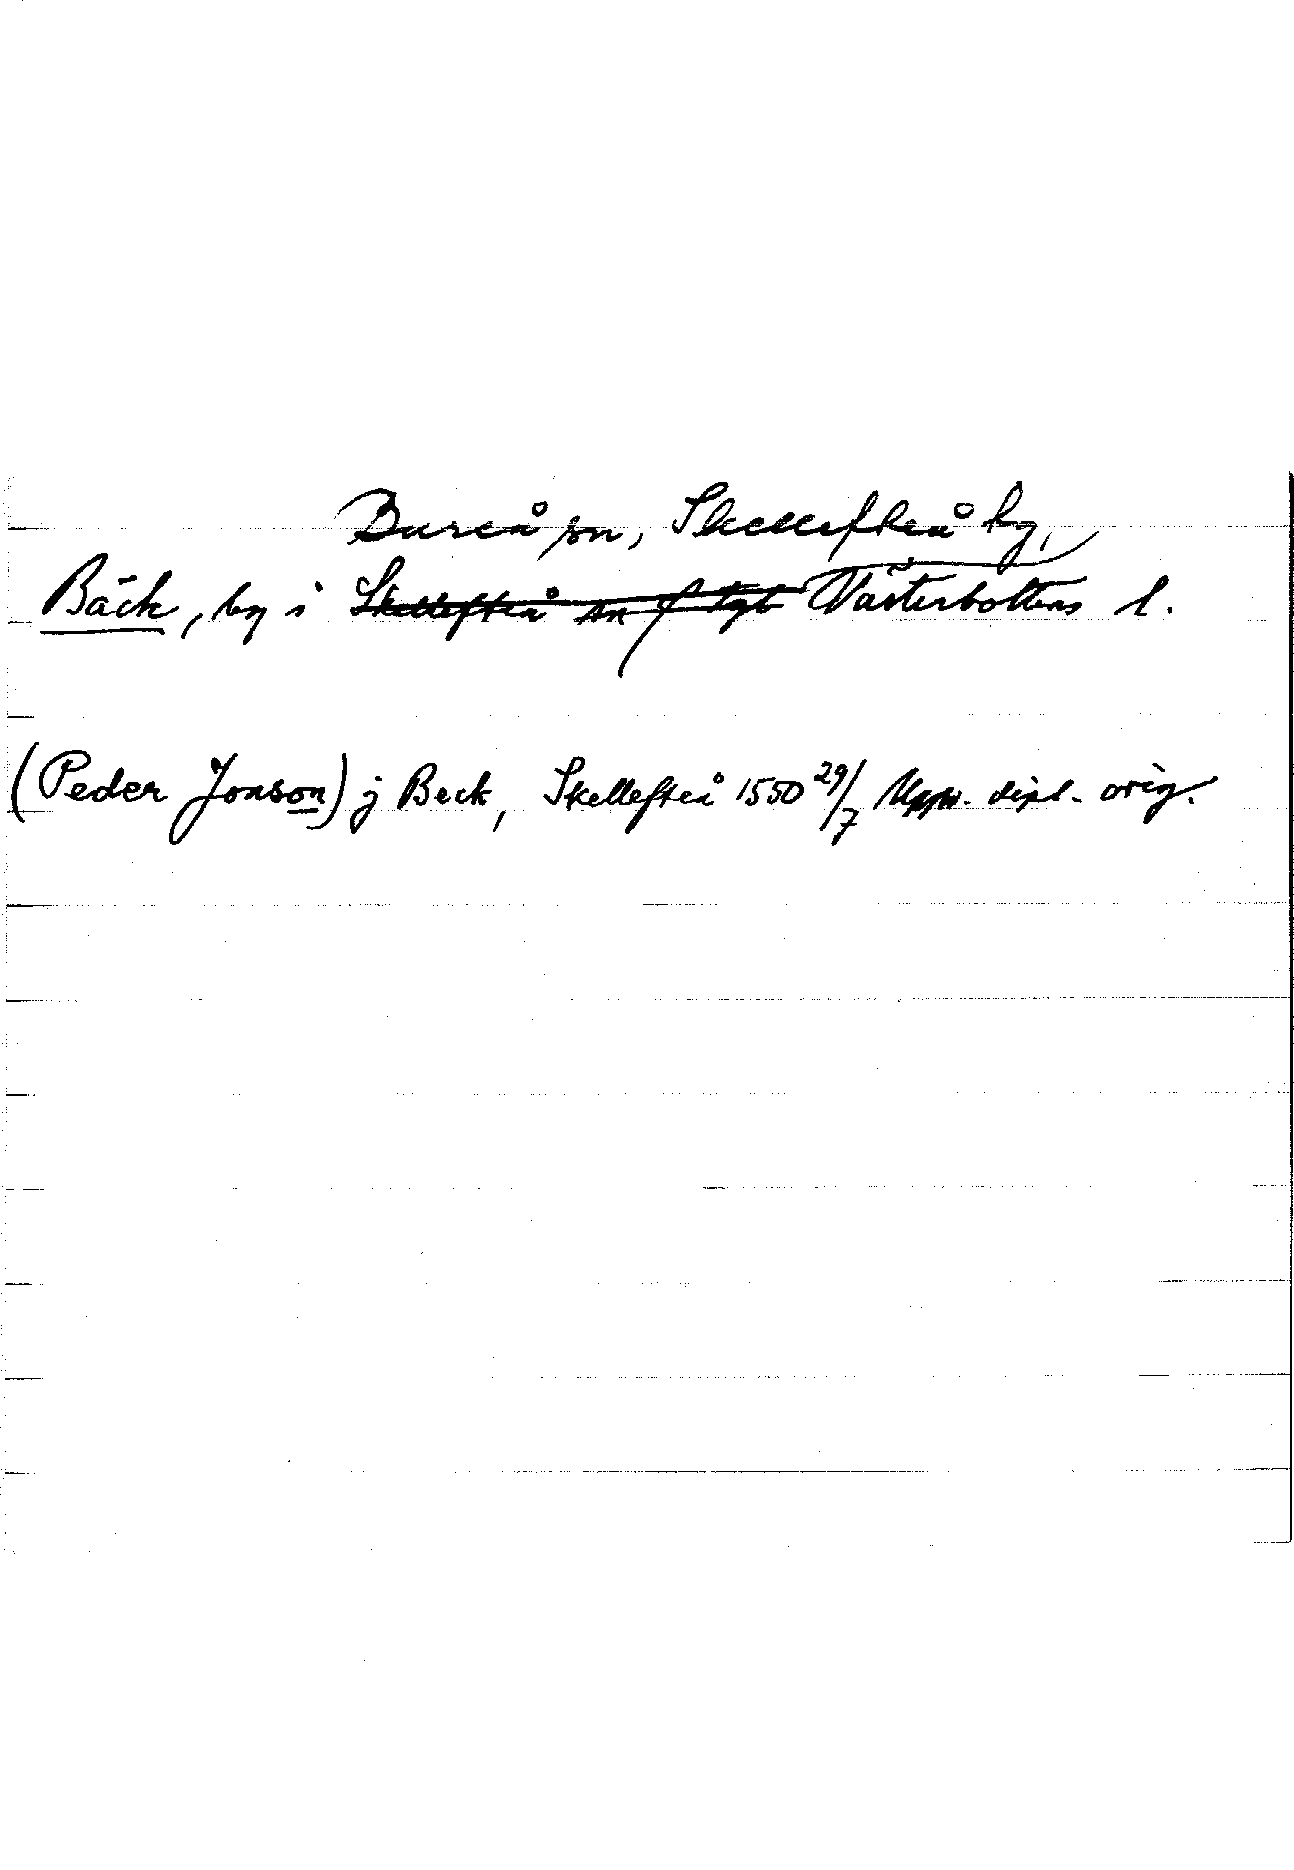 Bureå sn, Skellefteå tg,
Bäck, by i Skellefteå sn Västerbottens l.
(Peder Jonson) j Beck, Skellefteå 1550 29/7 Upps. dipl. orig.